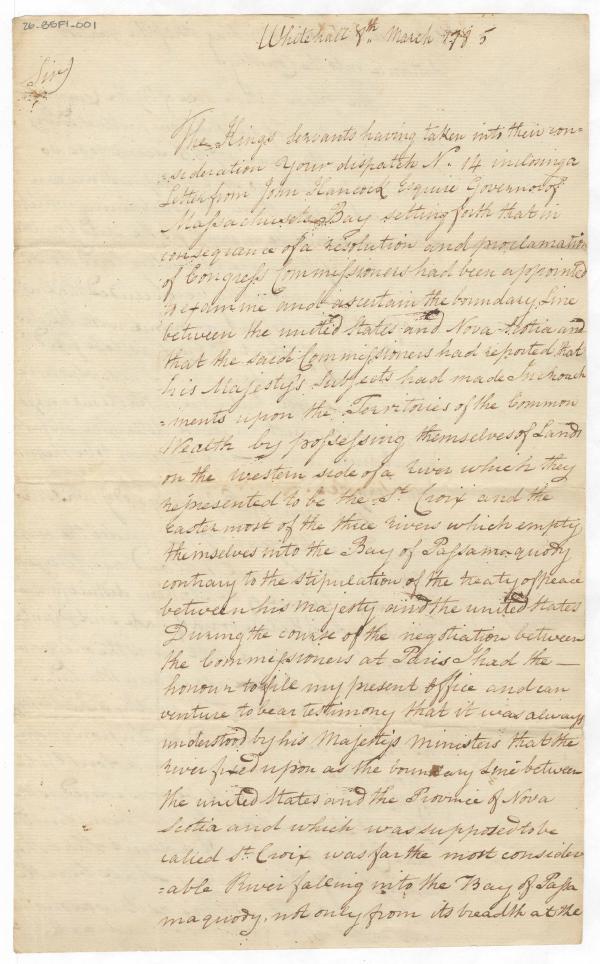 26-85F1-001
Whitehall 8th March 1785
Sir
The Kings Servants having taken into their con=
=sideration Your dispatch No. 14 inclosing a
Letter from John Hancock Esquire Governor of
Massachusets Bay setting forth that in
consequence of a resolution and proclamation
of Congress Commissioners had been appointed
to examine and ascertain the boundary Line
between the united States and Nova Scotia and
that the said Commissioners had reported that
his Majestys Subjects had made Incroach
=ments upon the Territories of the Common
Wealth by possessing themselves of Lands
on the western side of a River which they
represented to be the St. Croix and the
Easter most of the three rivers which empty
themselves into the Bay of Passamaquody
contrary to the stipulation of the treaty of peace
between his Majesty and the united States
During the course of the negotiation between
the Commissioners at Paris I had the —
honour to fill my present office and can
venture to bear testimony that it was always
understood by his Majestys Ministers that the
river fixed upon as the boundary Line between
the united States and the Province of Nova
Scotia and which was supposed to be
called St. Croix was far the most consider
=able River falling into the Bay of Passa
maquody, not only from its breadth at the